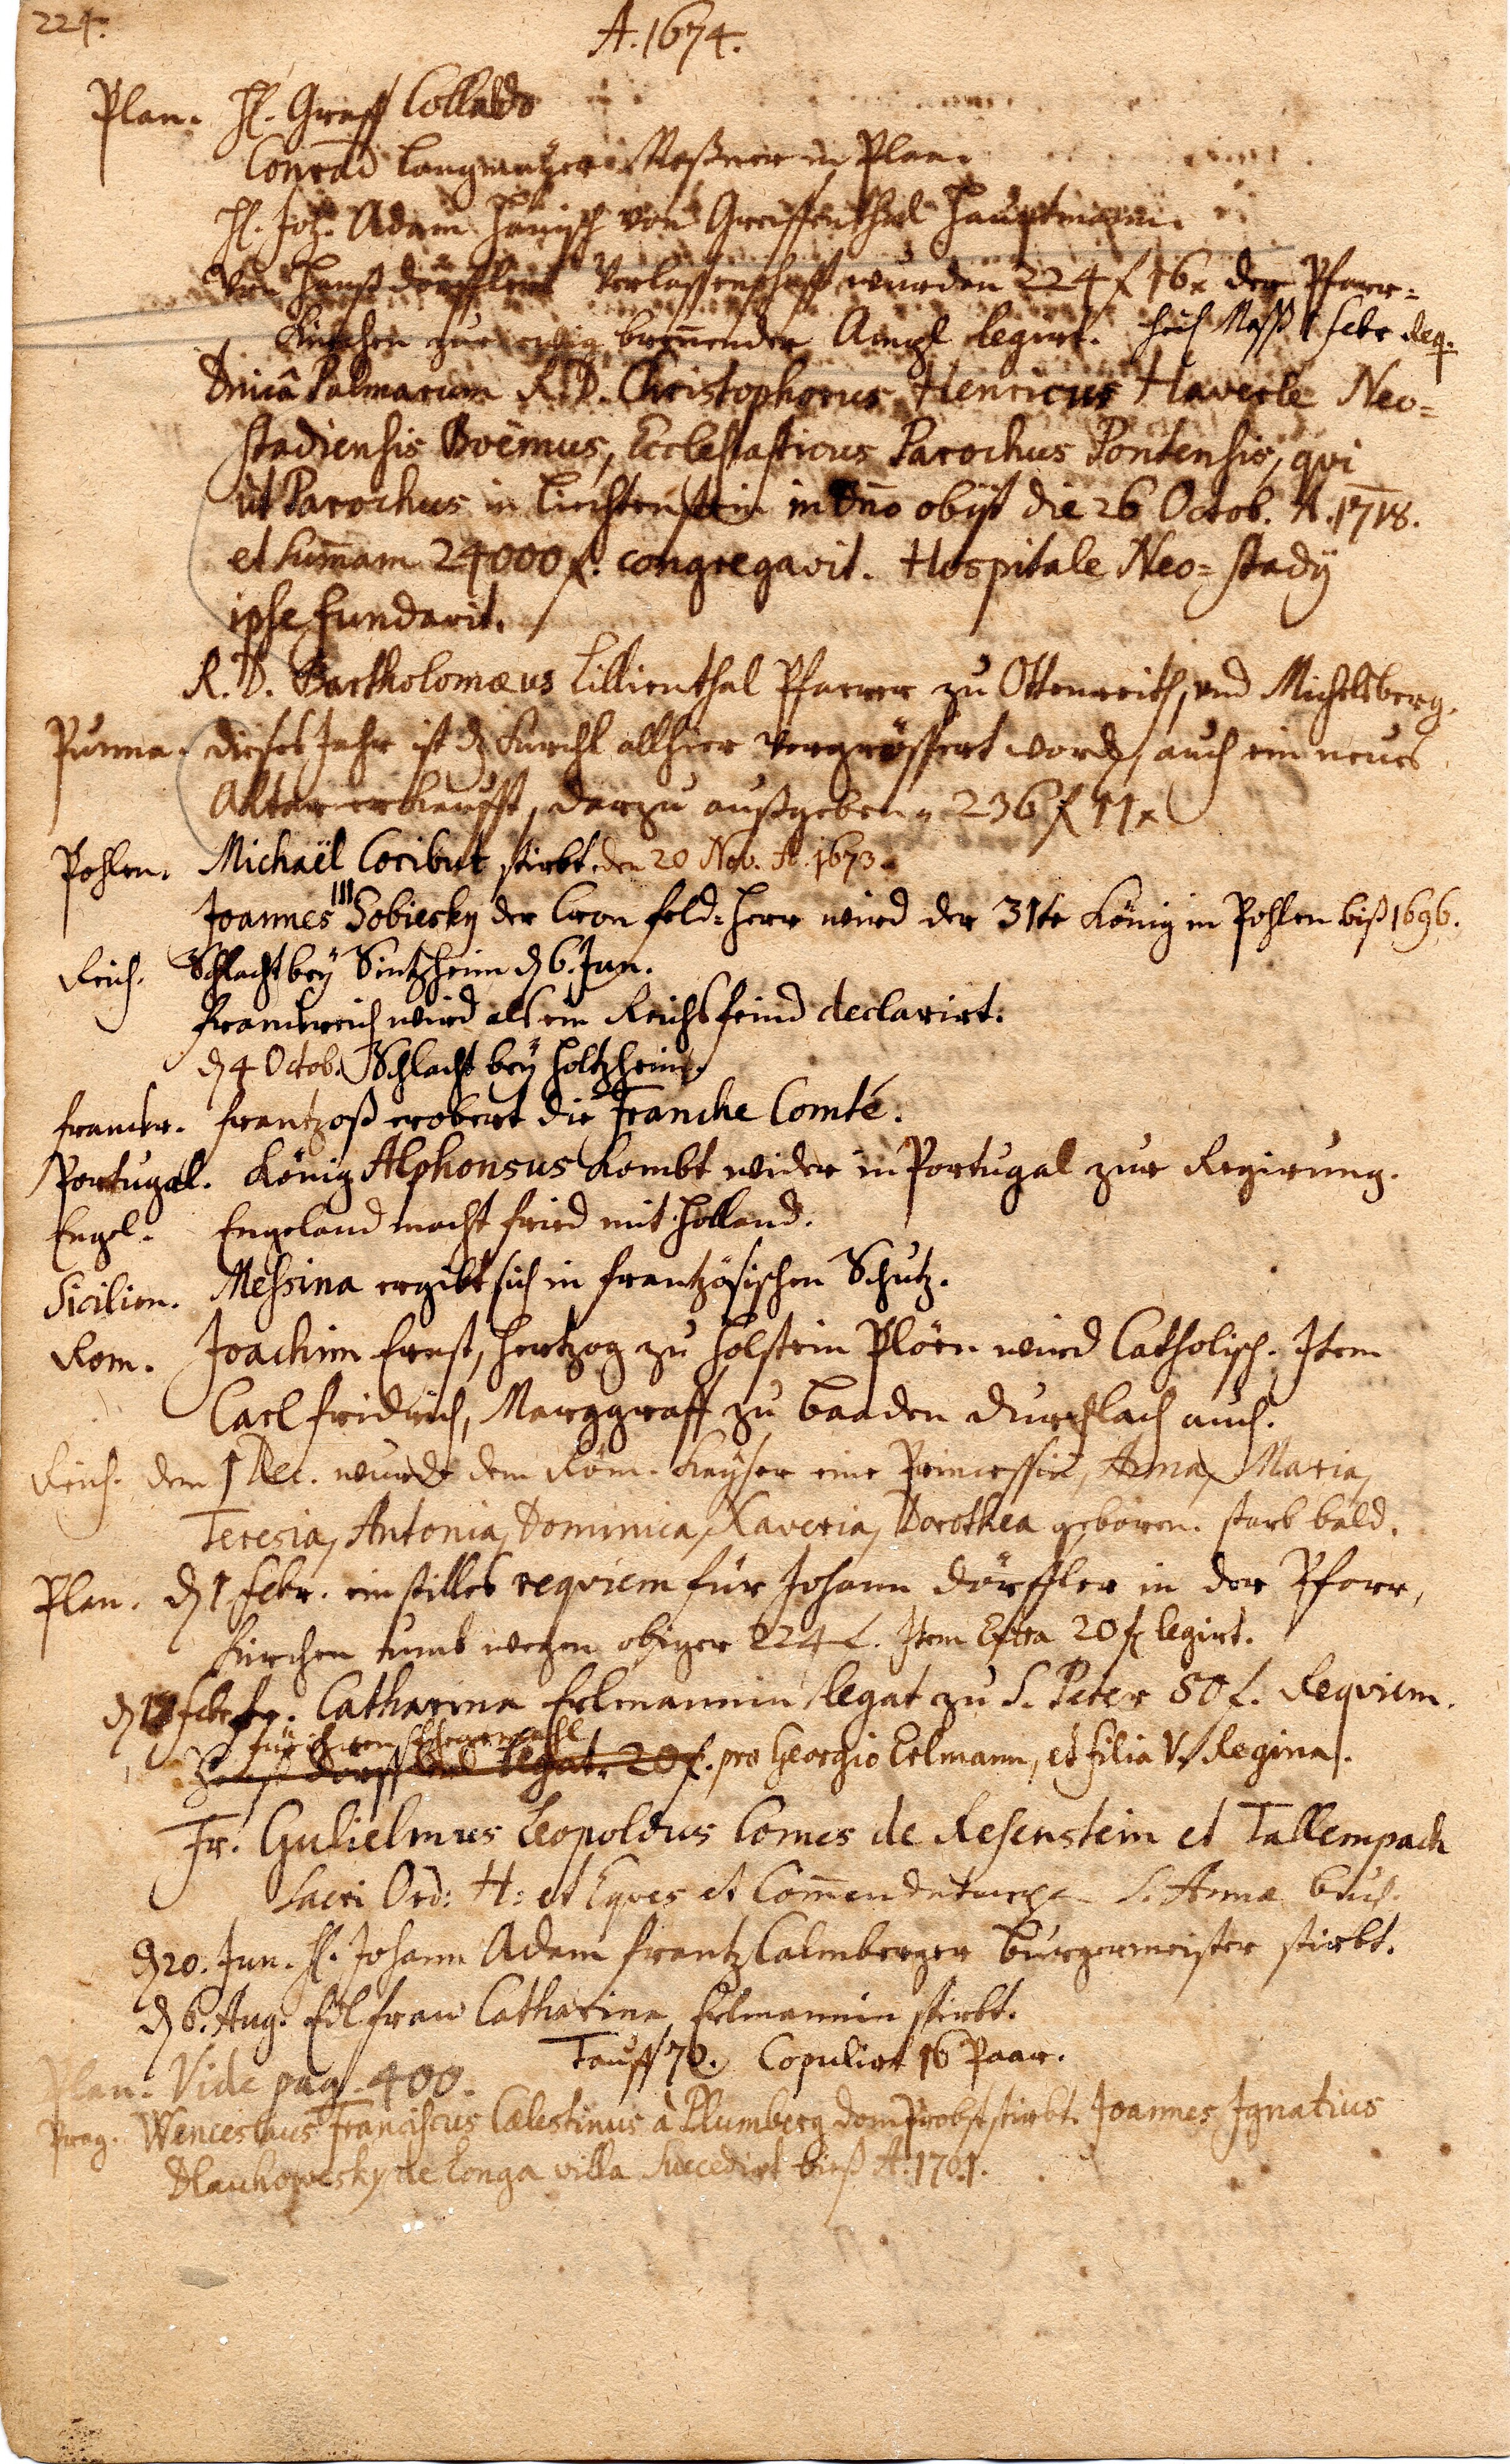 224.
A. 1674.
Plan. H. Graff Collaldo
Conrad Langmayer Messner in Plan.
H. Joh. Adam Hänisch von Greiffenthal Hauptmann.
Von Hanß Dörfflers Verlassenschafft wurden 224 f 16 x der Pfarr=
Kirchen zur ewig brennender Ampl legirt. Heil. Mess 1 Febr Req.
Dnicâ Palmarum R. D. Christophorus Henricus Haverle Neo=
stadiensis Boëmus, Ecclesiasticus Parochus Pontensis, qui
ut Parochus in Liechtenstein in Dno obijt die 26 Octob. A. 1718.
et Summam 24000 f. congregavit. Hospitale Neo=stadij
ipse Fundavit.
R. D. Bartholomæus Lillienthal Pfarrer zu Ottenreith, und Michelsberg.
Purma. Dieses Jahr ist d. Kirchl allhier vergrössert word, auch ein neues
Altar erkaufft, darzu außgeben 236 f 11 x
Pohlen. Michaël Coribut stirbt den 20 Nov. A. 1673.
Joannes III Sobiesky der Cron feld=Herr wird der 31te König in Pohlen biß 1696.
Reich. Schlacht bey Sintzheim d. 6. Jun.
Franckreich wird als ein Reichsfeind declarirt.
d. 4 Octob. Schlacht bey Holtzheim.
Franckr. Frantzoß erobert die Franche Comté.
Portugal. König Alphonsus kombt wider in Portugal zur Regirung.
Engel. Engeland macht frid mit Holland.
Sicilien. Messina ergibt sich in frantzösischen Schutz.
Rom. Joachim Ernst, Hertzog zu Holstein Plöen wird Catholisch. Item
Carl Fridrich, Marggraff zu Baaden Durchlach auch.
Reich. den 1 Dec. wurde dem Röm. Kayser eine Princessin, Anna, Maria,
Teresia, Antonia, Dominica, Xaveria, Dorothea geboren. starb bald.
Plan. d. 1 Febr. ein stilles requiem für Johann Dörffler in der Pfarr,
Kirchen kumt wegen obiger 224 f. Item Extra 20 f legirt.
Febr. Catharina Erlmannin legat zu S. Peter 50 f. Requiem.
für ihren Ehegemahl
Hanß Dörffler legat. 20 f. pro Georgio Erlmann, et filia V. Regina.
Fr. Gulielmus Leopoldus Comes de Resenstein et Tallempach
Sacri Ord: H: et Eques et Commendator S. Annæ
d. 20. Jun. H. Johann Adam Frantz Calmberger Burgermeister stirbt.
d. 6. Aug. Edl frau Catharina Erlmannin stirbt.
Tauff 70. Copulirt 16 Paar.
Plan. Vide pag. 400.
Prag. Wenceslaus Franciscus Cælestinus à Plumberg Dom Probst stirbt. Joannes Ignatius
Dlauhowesky de Longa villa Succedirt biß A. 1701.